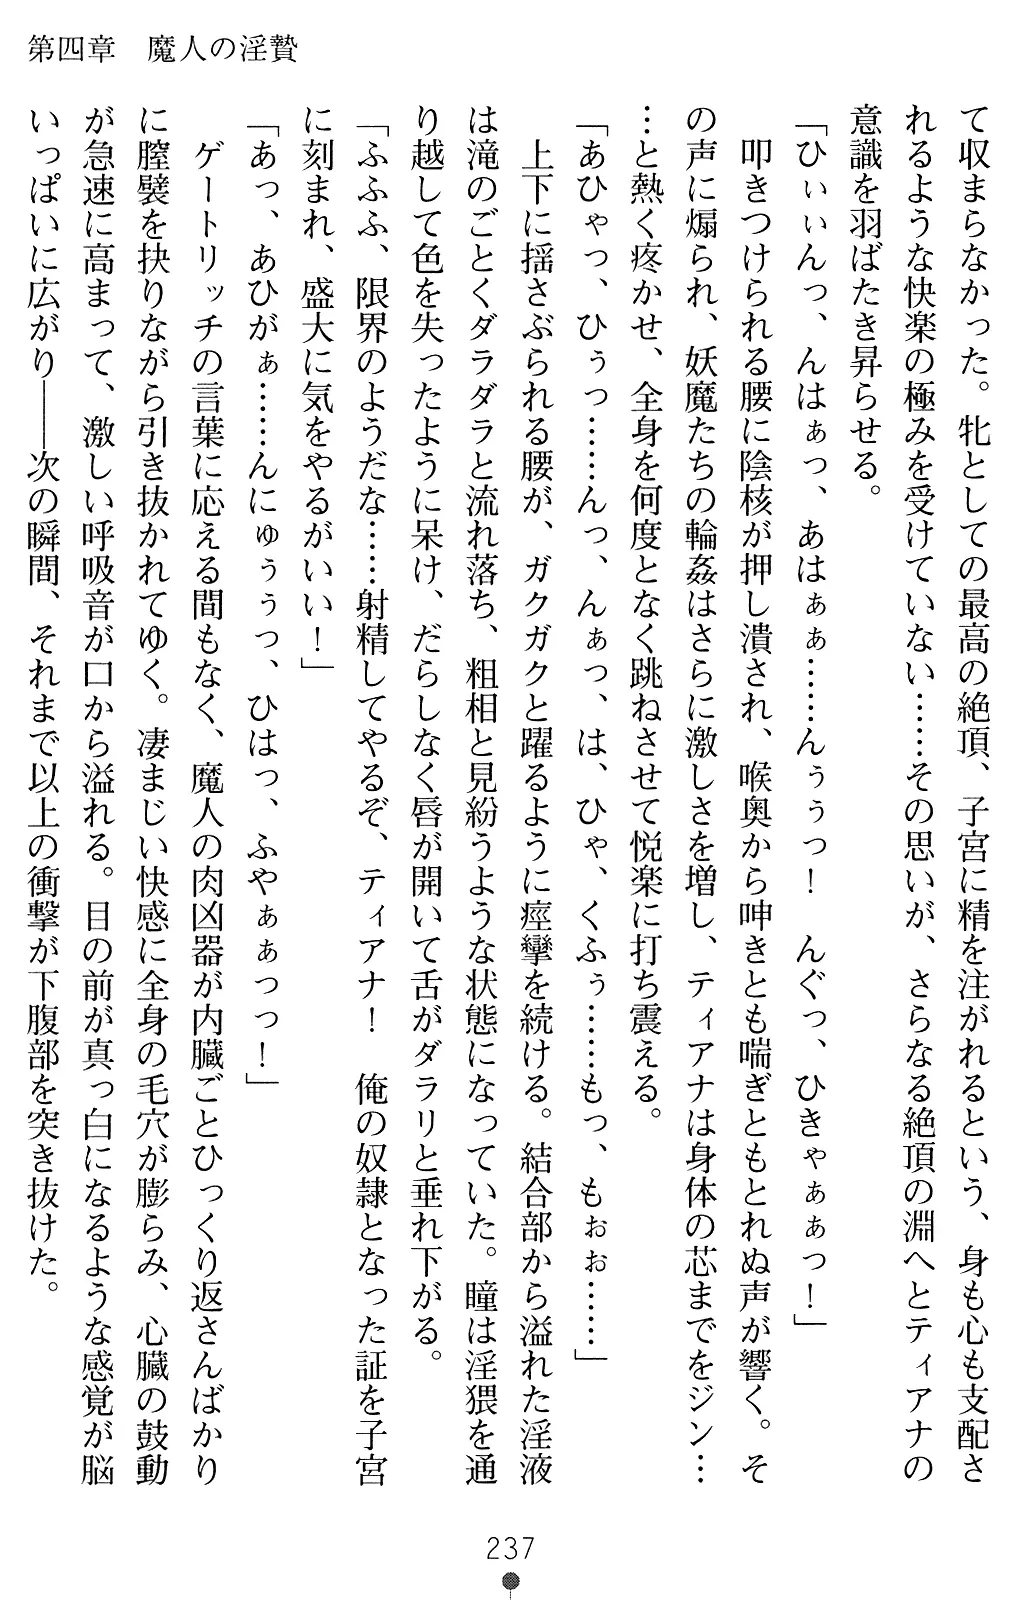 第四章　魔人の淫贄
て収まらなかった。牝としての最高の絶頂、子宮に精を注がれるという、身も心も支配さ
れるような快楽の極みを受けていない……その思いが、さらなる絶頂の淵へとティアナの
意識を羽ばたき昇らせる。
「ひぃぃんっ、んはぁっ、あはぁぁ……んぅぅっ！　んぐっ、ひきゃぁぁっ！」
　叩きつけられる腰に陰核が押し潰され、喉奥から呻きとも喘ぎともとれぬ声が響く。そ
の声に煽られ、妖魔たちの輪姦はさらに激しさを増し、ティアナは身体の芯までをジン…
…と熱く疼かせ、全身を何度となく跳ねさせて悦楽に打ち震える。
「あひゃっ、ひぅっ……んっ、んぁっ、は、ひゃ、くふぅ……もっ、もぉぉ……」
　上下に揺さぶられる腰が、ガクガクと躍るように痙攣を続ける。結合部から溢れた淫液
は滝のごとくダラダラと流れ落ち、粗相と見紛うような状態になっていた。瞳は淫猥を通
り越して色を失ったように呆け、だらしなく唇が開いて舌がダラリと垂れ下がる。
「ふふふ、限界のようだな……射精してやるぞ、ティアナ！　俺の奴隷となった証を子宮
に刻まれ、盛大に気をやるがいい！」
「あっ、あひがぁ……んにゅぅぅっ、ひはっ、ふやぁぁっっ！」
　ゲートリッチの言葉に応える間もなく、魔人の肉凶器が内臓ごとひっくり返さんばかり
に膣襞を抉りながら引き抜かれてゆく。凄まじい快感に全身の毛穴が膨らみ、心臓の鼓動
が急速に高まって、激しい呼吸音が口から溢れる。目の前が真っ白になるような感覚が脳
いっぱいに広がり――次の瞬間、それまで以上の衝撃が下腹部を突き抜けた。
237